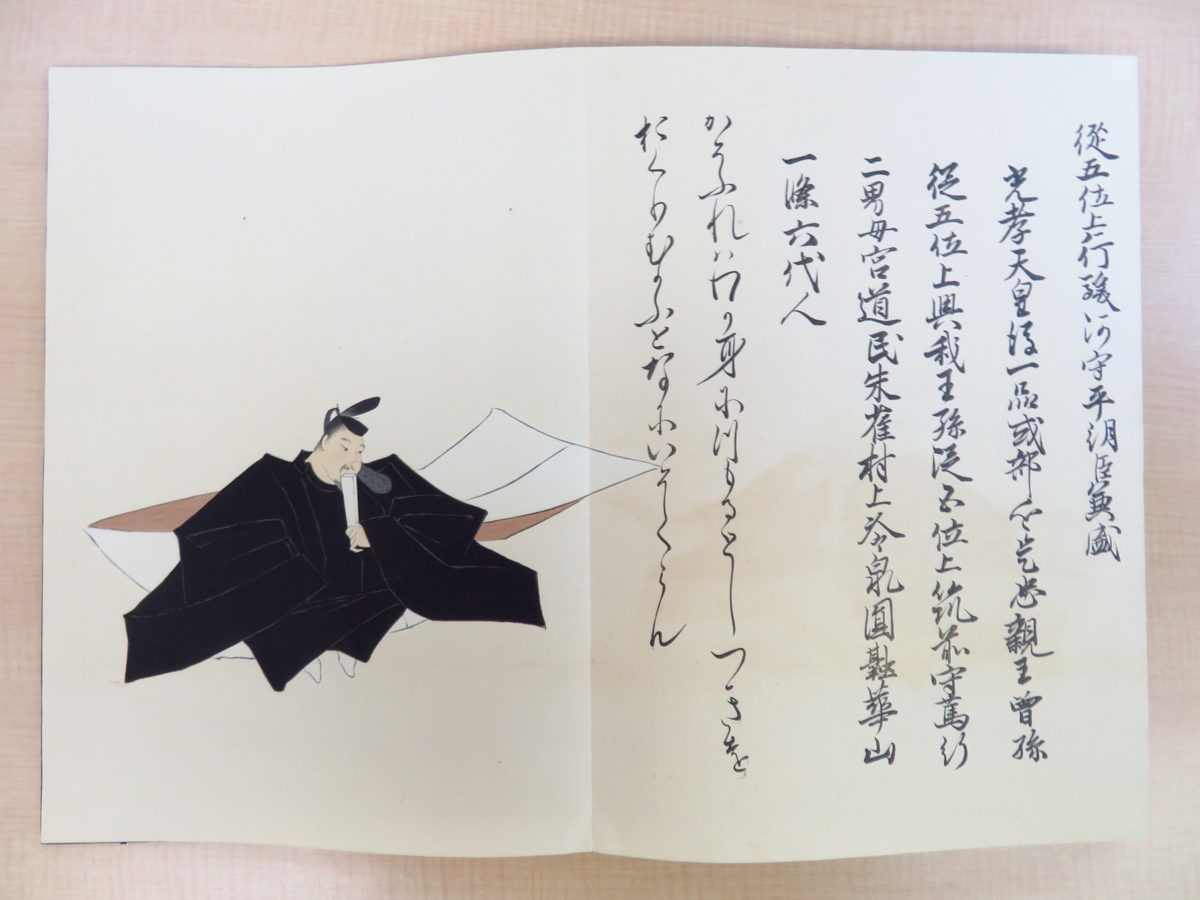 從五位上行駿河守平朝臣兼盛
光孝天皇後一品式部卿是忠親王曾孫
從五位上興我王孫從五位上筑前守篤行
二男母宮道氏朱雀村上冷泉圓融華山
一條六代人
かそふれハわか身につもるとし月を
おくりむかふとなにいそくらん